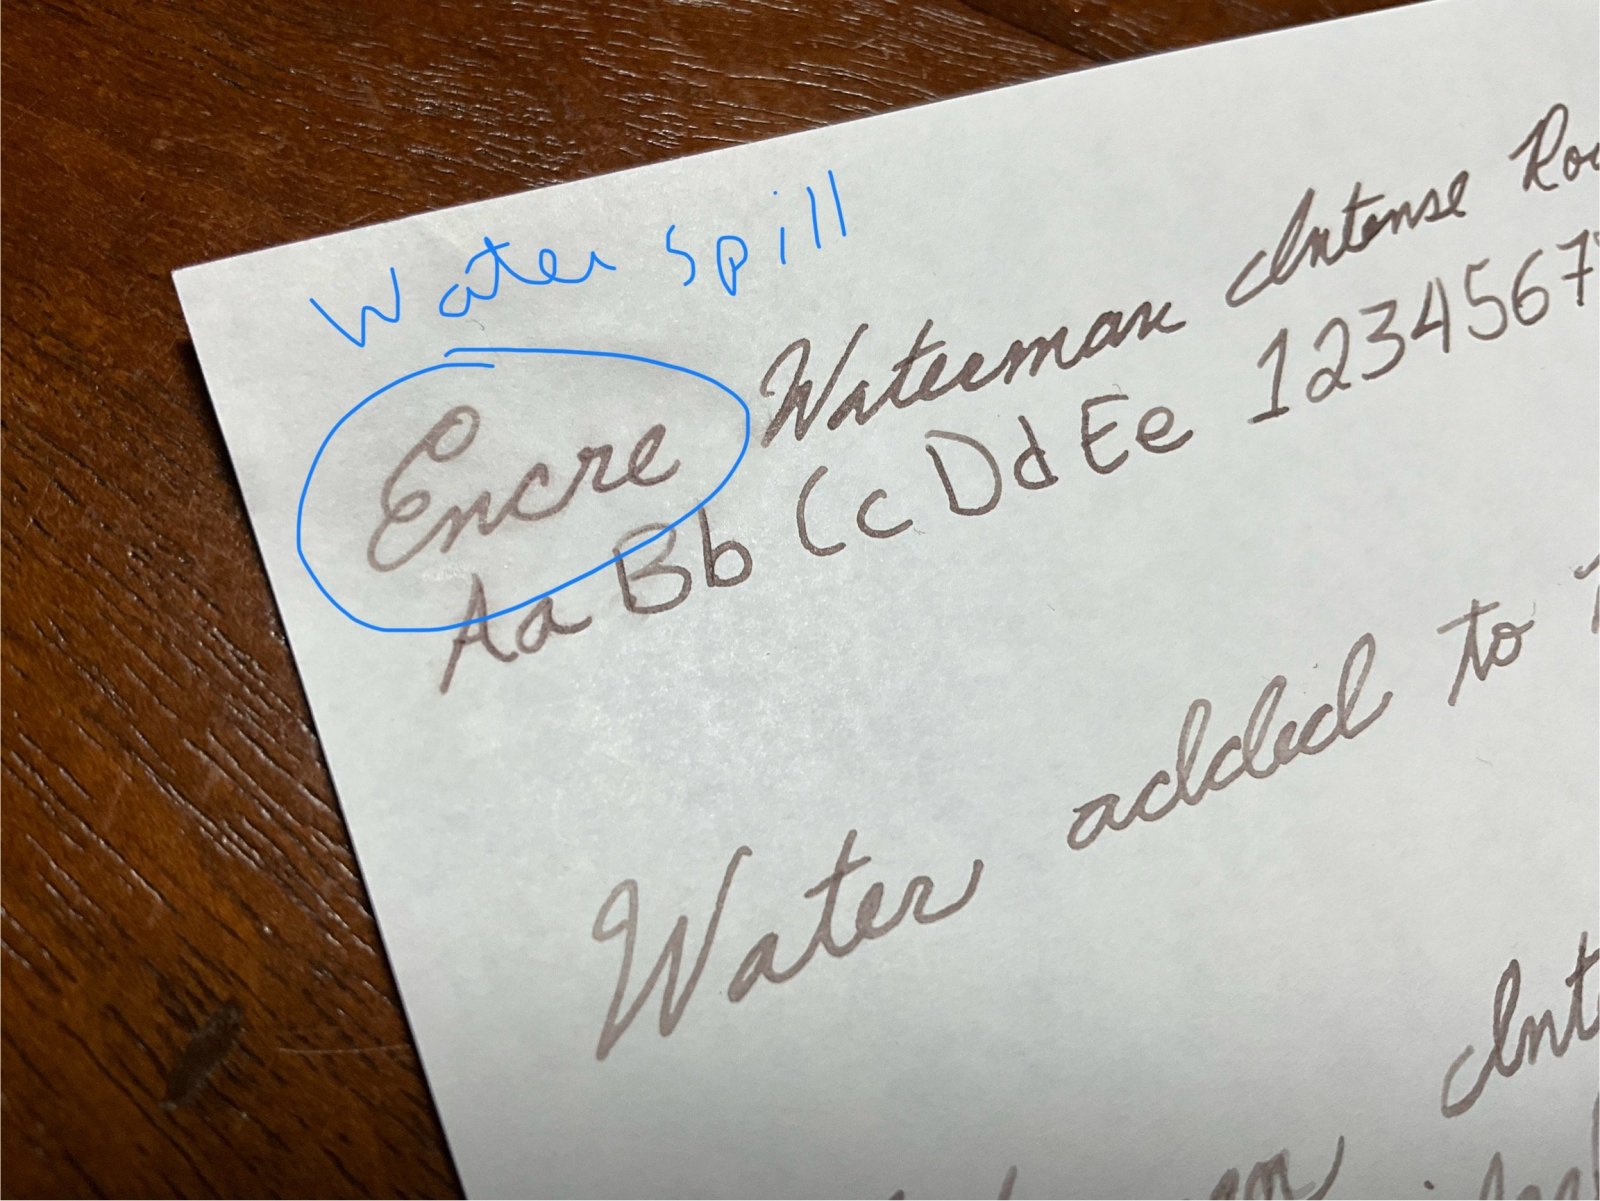 Water spill
Encre Waterman Intense
Aa Bb Cc Dd Ee 1234567
Water added to